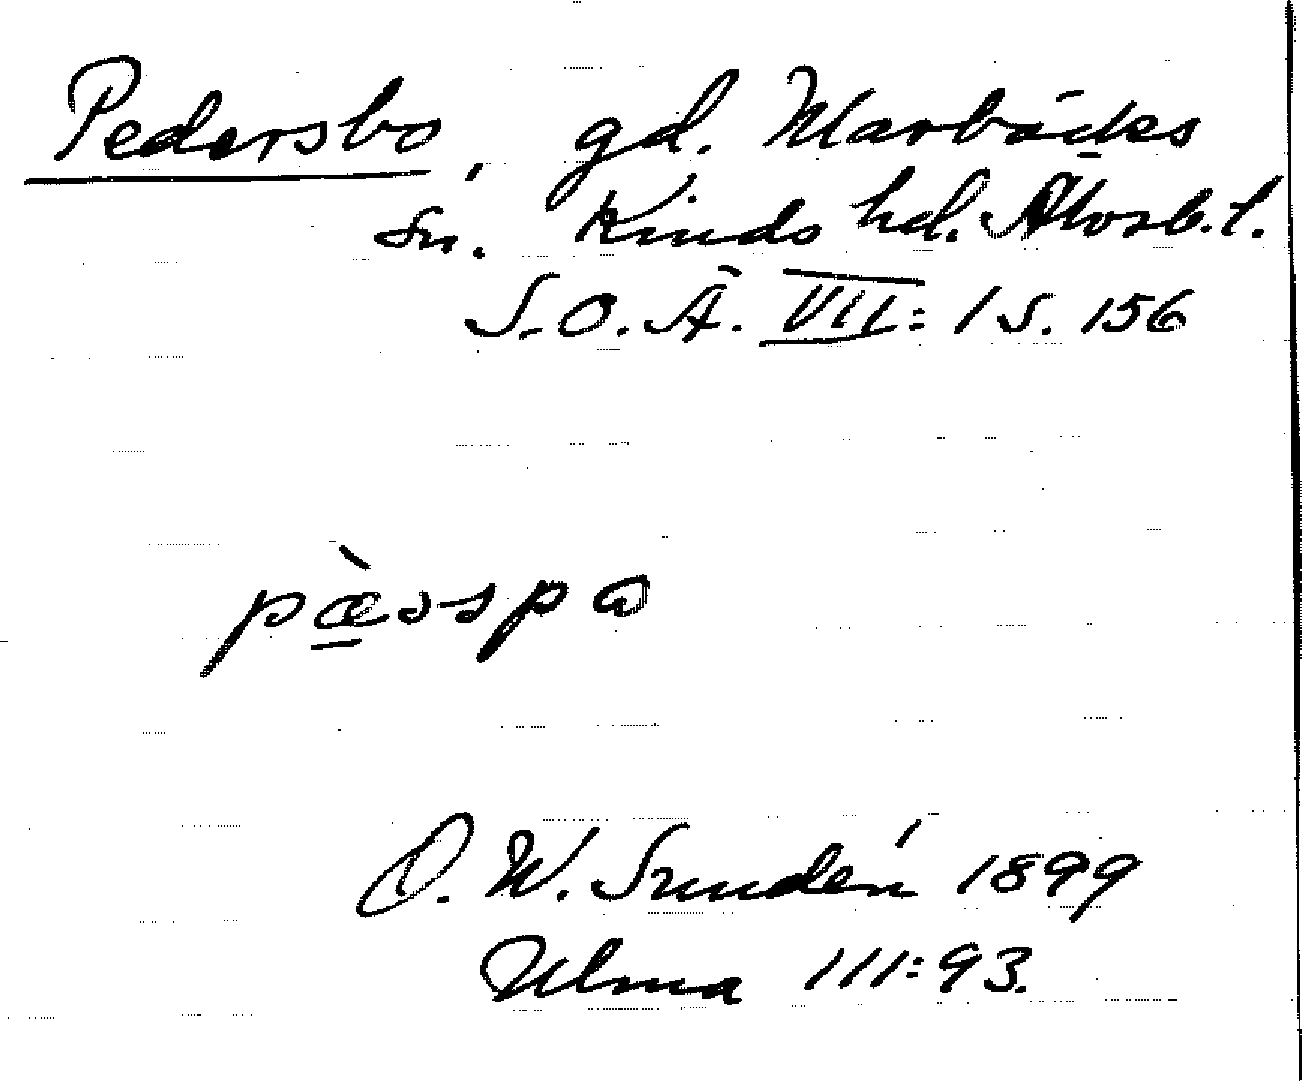 Pedersbo, gd. Marbäcks
sn. Kinds hd. Älvsb. l.
S.O.Ä. VII: 1 s. 156
pæ̀sspa
D. W. Sundén 1899
Ulma 111:93.